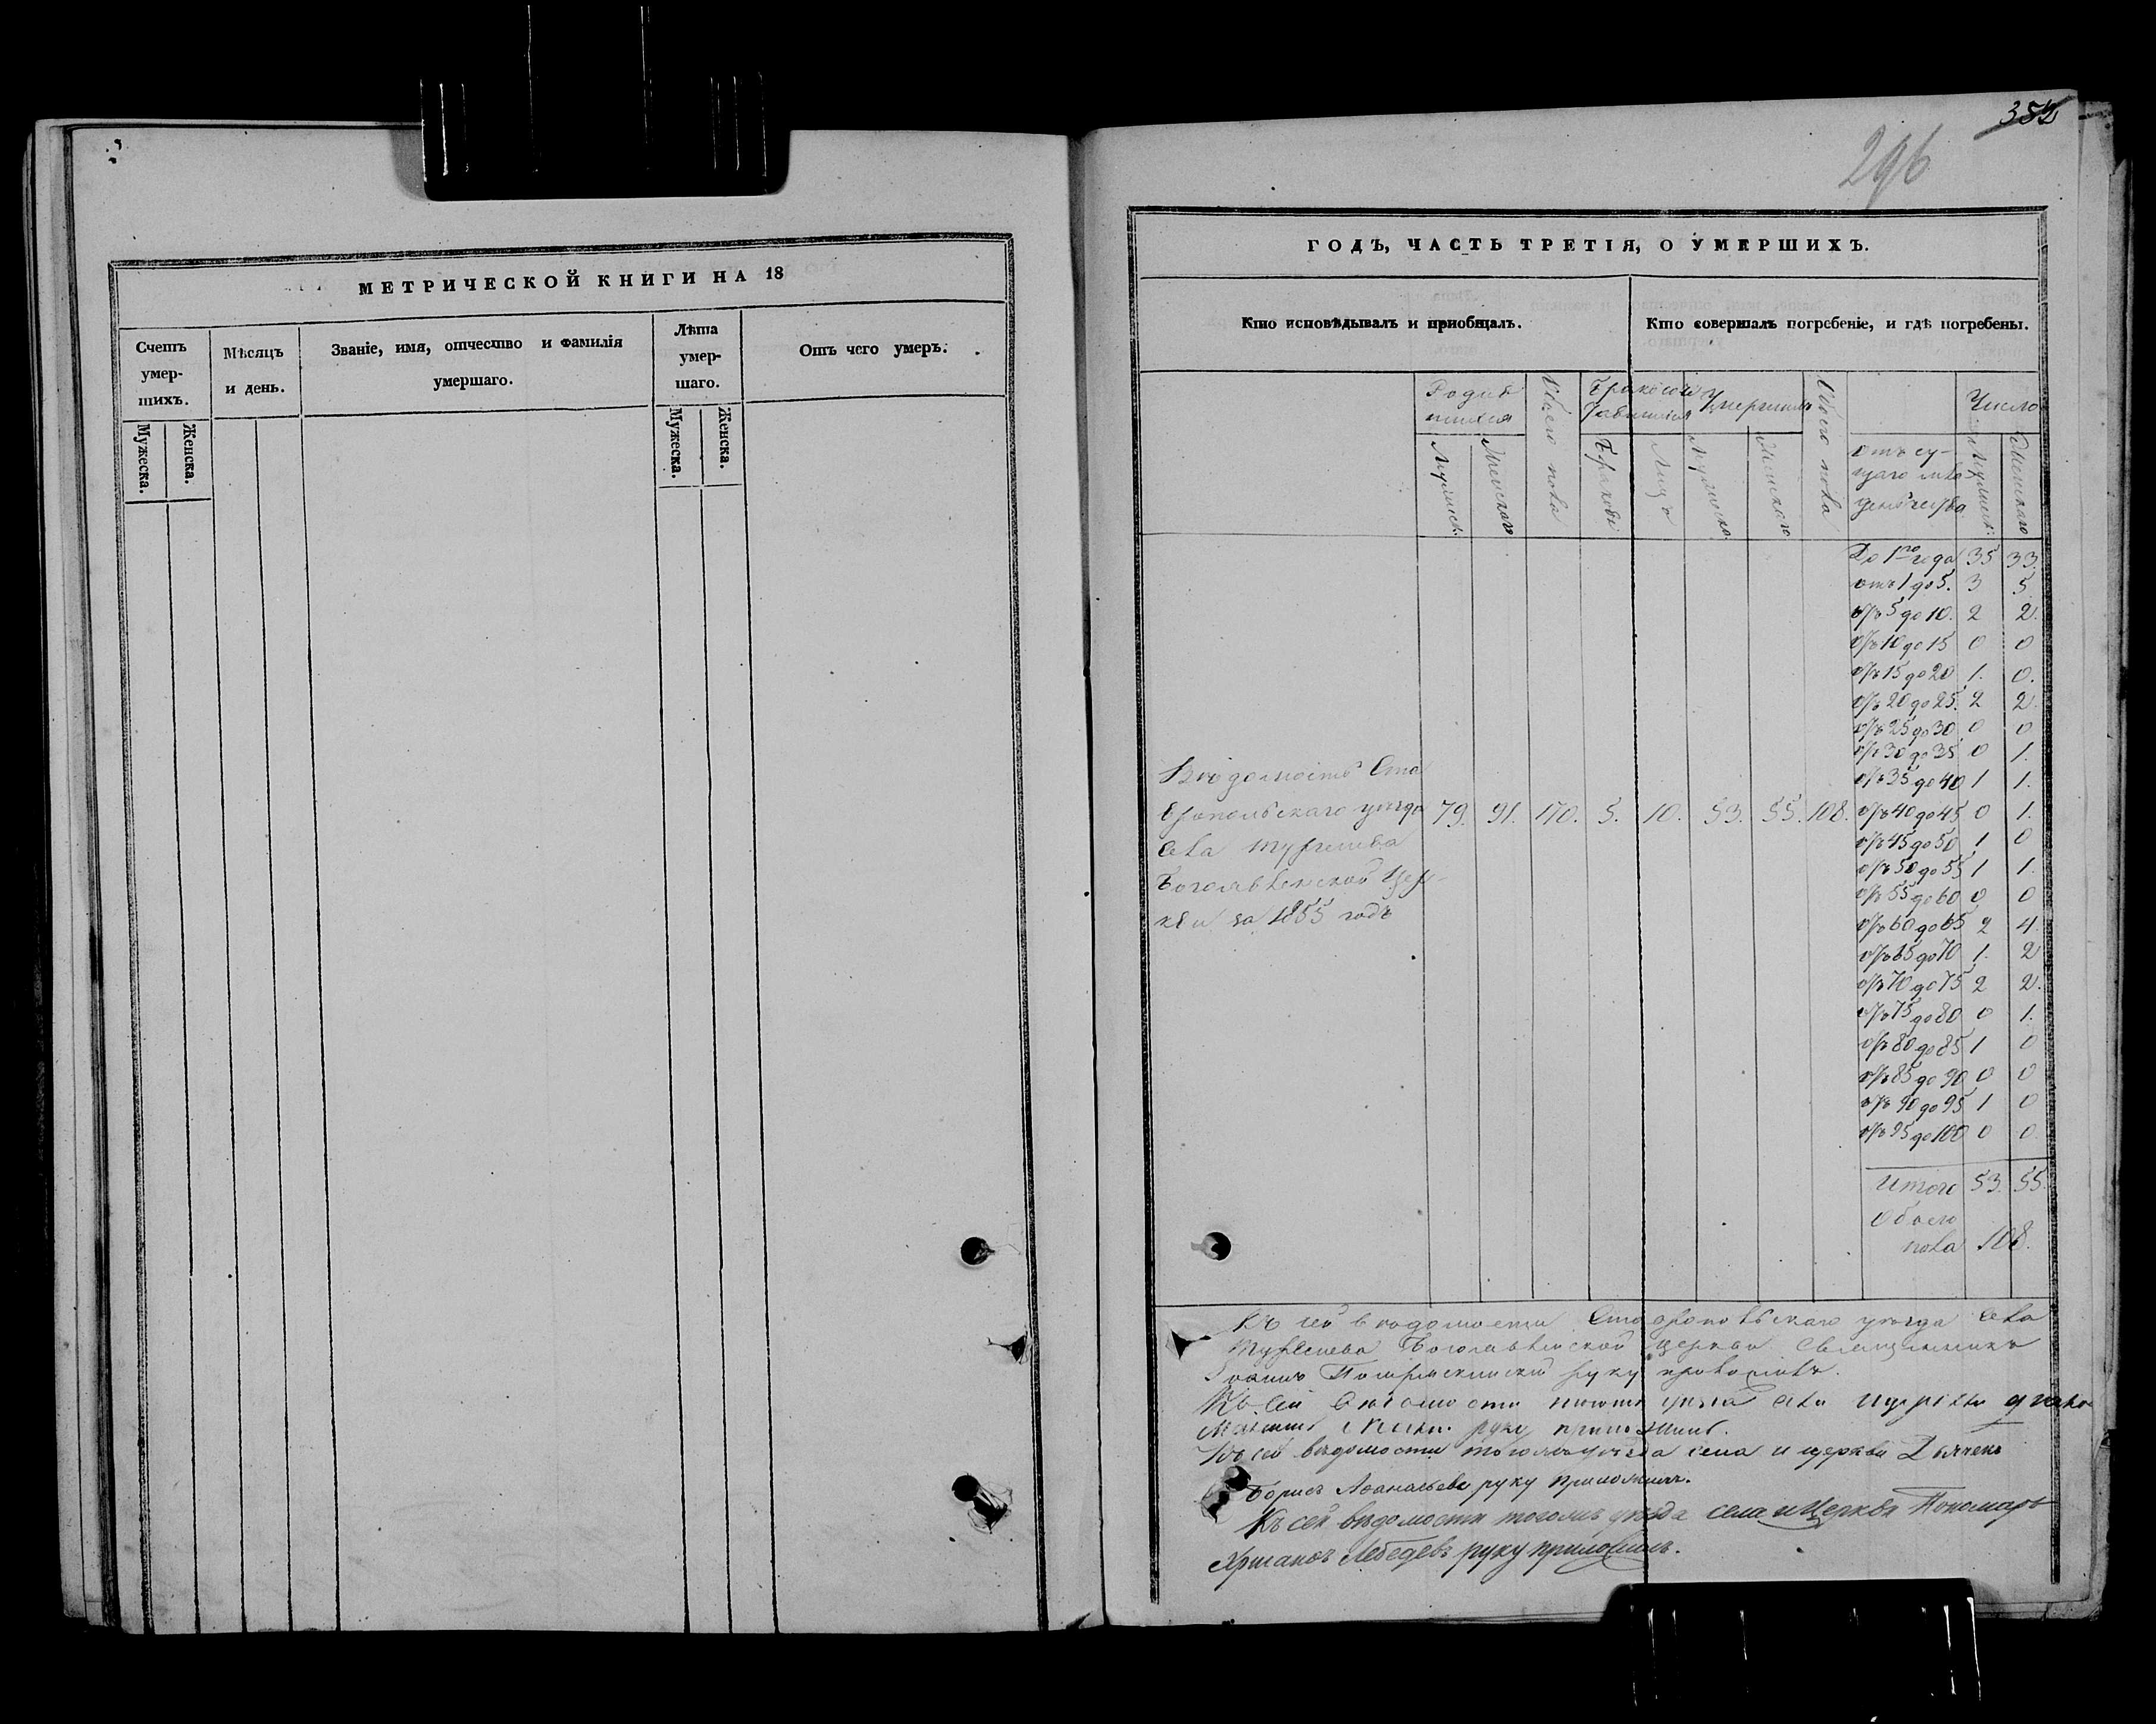 МЕТРИЧЕСКОЙ КНИГИ НА 18
Счетъ умер-шихъ.
Мужеска.
Женска.
Мѣсяцъ и день.
Званіе, имя, отчество и фамилія умершаго.
Лѣта умер-шаго.
Мужеска.
Женска.
Отъ чего умеръ.
352
296
ГОДЪ, ЧАСТЬ ТРЕТІЯ, О УМЕРШИХЪ.
Кто исповѣдывалъ и пріобщалъ.
Кто совершалъ погребеніе, и гдѣ погребены.
Родив
шихся
Обоего пола
Умершихъ
Обоего пола
Число
Женскаго
Браковъ
Лицъ
Женскаго
Женскаго
До 1го года 35 33.
отъ 1 до 5. 3 5.
отъ 5 до 10. 2 2.
отъ 10 до 15 0 0
отъ 15 до 20 1. 0.
отъ 20 до 25. 2 2.
отъ 25 до 30 0 0
отъ 30 до 35 0 1.
отъ 35 до 40 1 1.
Вѣдомость Ста
вропольскаго уѣзда 79. 91. 170. 5. 10. 53. 55. 108. отъ 40 до 45 0 1.
села
отъ 45 до 50 1 0
Богоявленской Цер-
отъ 50 до 55 1 1.
кви за 1855 годъ
отъ 55 до 60 0 0
отъ 60 до 65 2 4.
отъ 65 до 70 1. 2
отъ 70 до 75 2 2.
отъ 75 до 80 0 1.
отъ 80 до 85 1 0
отъ 85 до 90 0 0
отъ 90 до 95 1 0
отъ 95 до 100 0 0.
Итого 53. 55.
Обоего
пола 108.
Къ сей вѣдомости Ставропольскаго уѣзда села
Богоявленской церкви Священникъ
Іоаннъ руку приложилъ.
Къ сей вѣдомости тогожъ уѣзда села и церкви
руку приложилъ.
Къ сей вѣдомости тогожъ уѣзда села и церкви Дьячекъ
Борисъ Аѳанасьевъ руку приложилъ.
Къ сей вѣдомости тогожъ уѣзда села и Церкви Пономарь
Лебедевъ руку приложилъ.